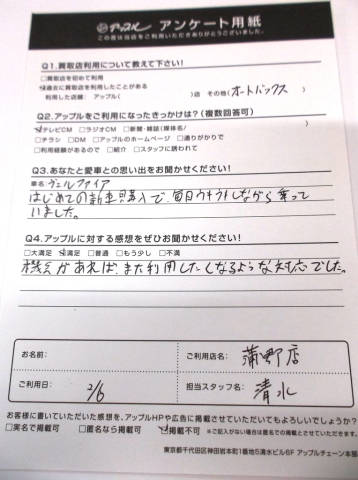 アップル アンケート用紙
この度は当店をご利用いただきありがとうございました。
Q1.買取店利用について教えて下さい!
□買取店を初めて利用
☑過去に買取店を利用したことがある
利用した店舗: アップル( )店 その他(オートバックス )
Q2.アップルをご利用になったきっかけは?(複数回答可)
☑テレビCM □ラジオCM □新聞・雑誌(媒体名/ )
□チラシ □DM □アップルのホームページ □通りがかりで
□利用経験があるので □紹介 □スタッフに誘われて
Q3.あなたと愛車との思い出をお聞かせください!
車名:ヴェルファイア
はじめての新車購入で、毎日ウキウキしながら乗って
いました。
Q4.アップルに対する感想をぜひお聞かせください!
□大満足 ☑満足 □普通 □もう少し □不満
機会があれば、また利用したくなるような対応でした。
お名前:
ご利用店名: 蒲野店
ご利用日: 2/6
担当スタッフ名: 清水
お客様に書いていただいた感想を、アップルHPや広告に掲載させていただいてもよろしいでしょうか?
□実名で掲載可 □匿名なら掲載可 ☑掲載不可 ※ご記入がない場合は匿名での掲載とさせていただきます。
東京都千代田区神田岩本町1番地5清水ビル6F アップルチェーン本部